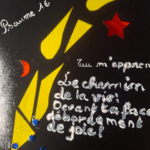 Psaume 16
Tu m'apprend
Le chemien
de la vie:
Devant ta face
débordement
de joie!